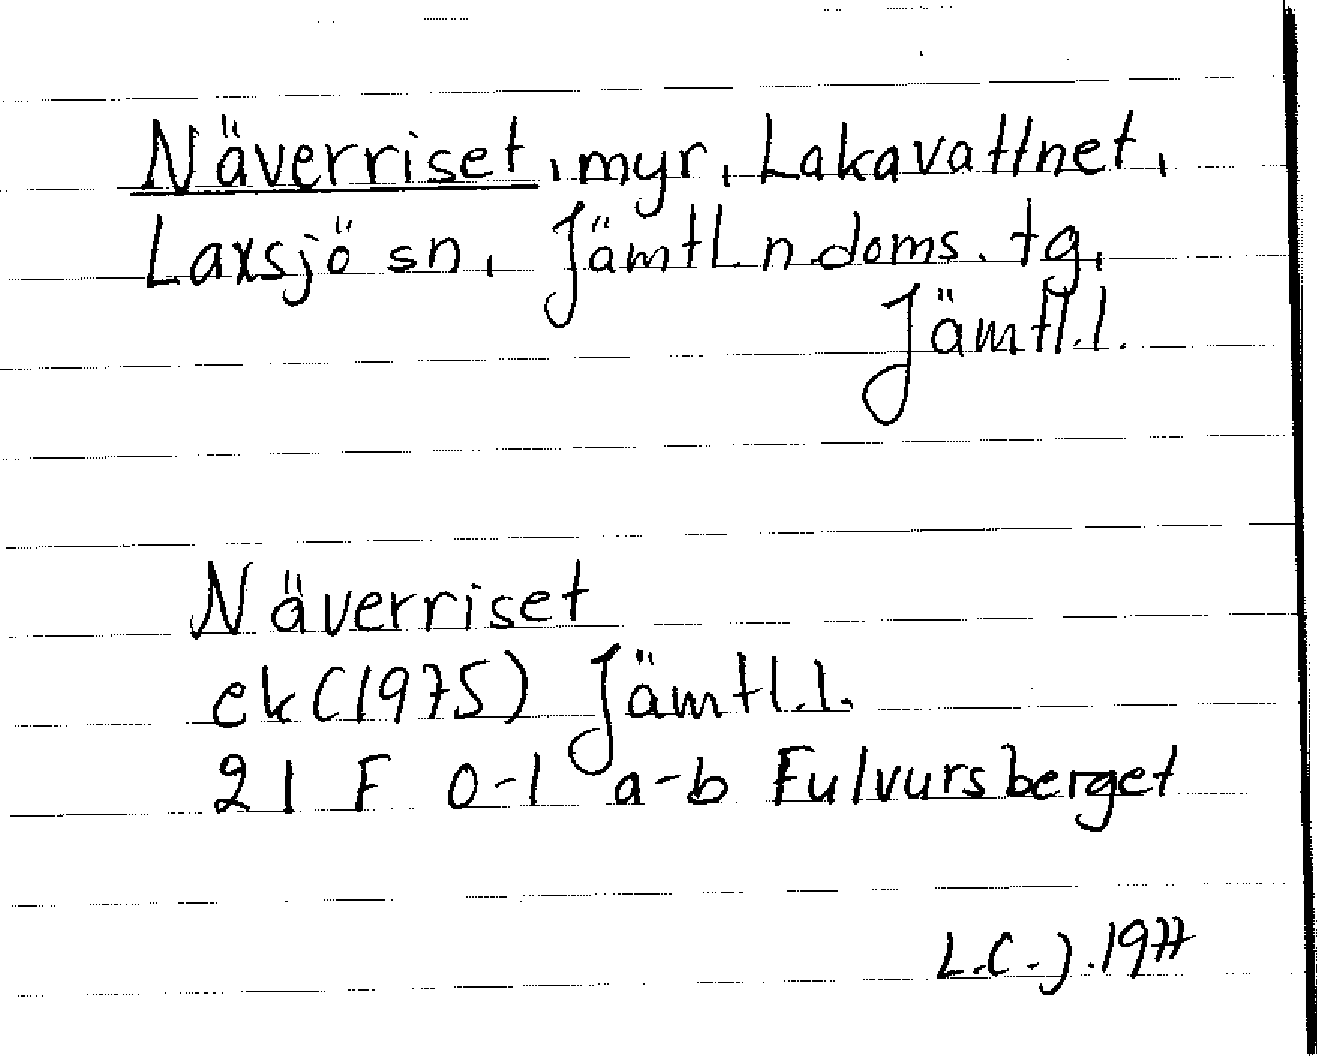 Näverriset, myr, Lakavattnet,
Laxsjö sn, Jämtl. n. doms. tg,
Jämtl.l.
Näverriset
ek (1975) Jämtl.l.
21 F 0-1 a-b Fulvursberget
L.C.J. 1977